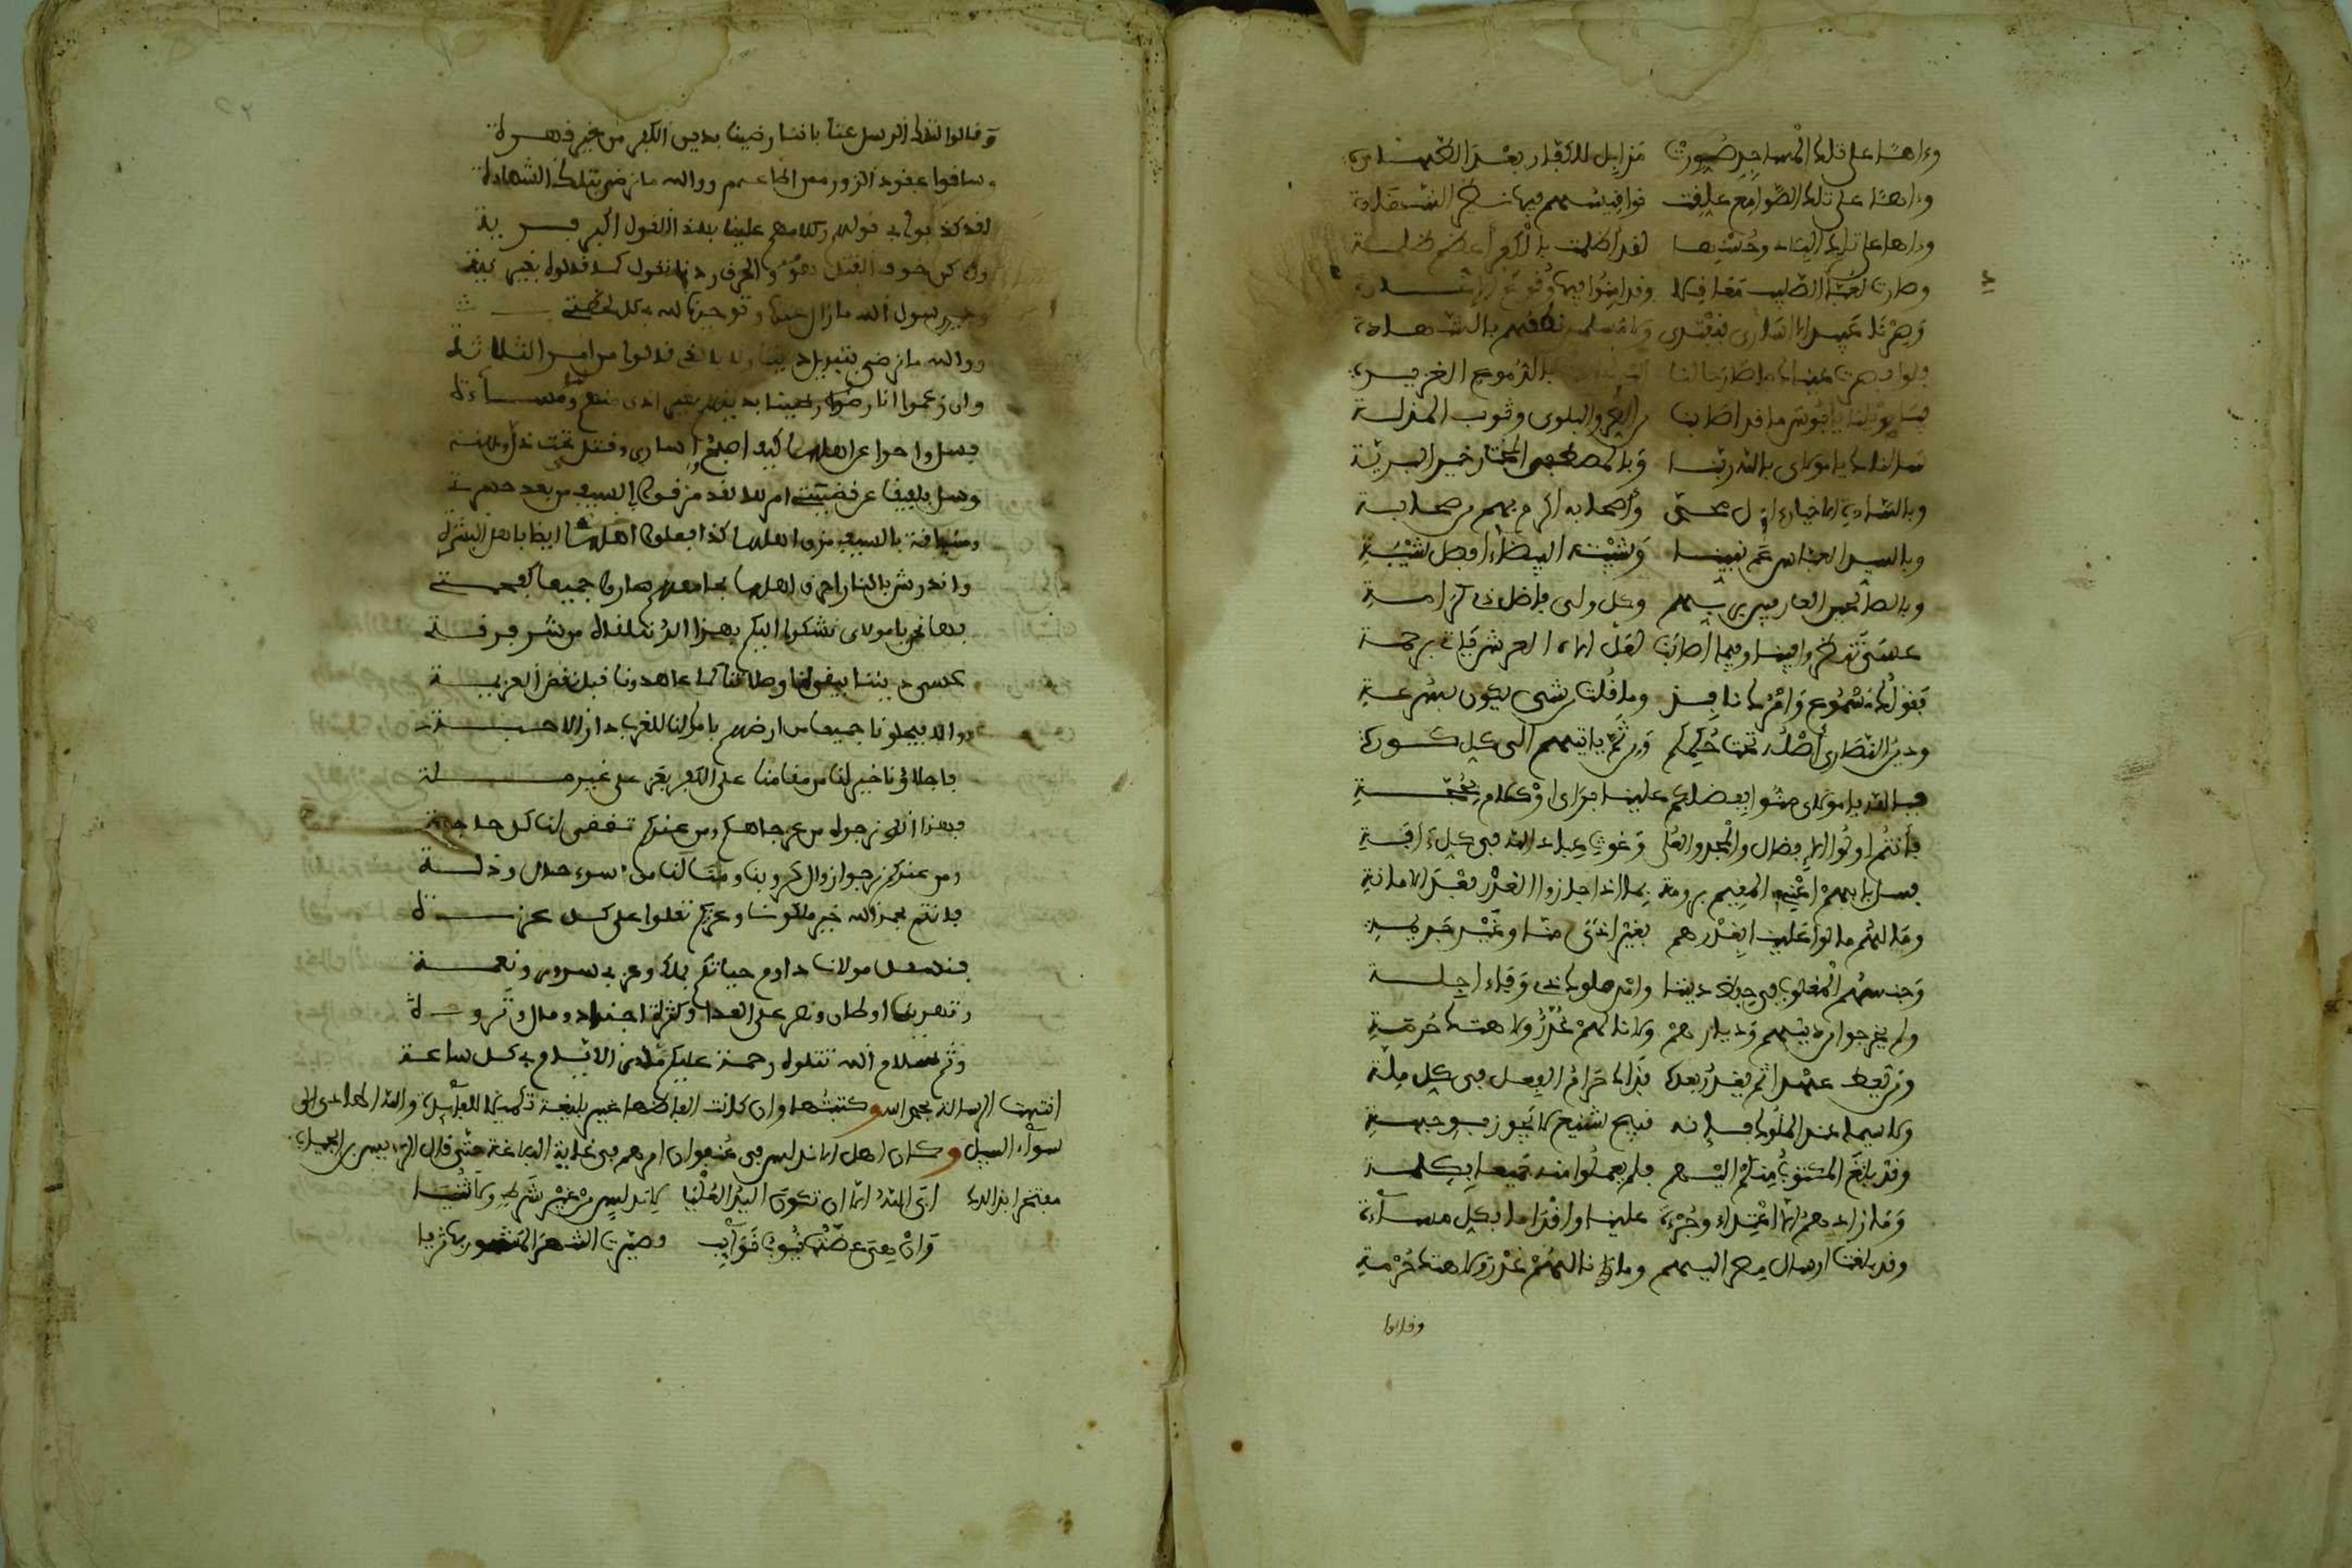 وءاها على تلك المساجد صيرت مزابل للكفار بعد الطهارة
وءاها على تلك الصوامع علقت نواقيسهم فيها نظير الشهادة
وءاها على تلك البلاد وحسنها لقد أظلمت بالكفر أعظم ظلمة
وصارت لعباد الصليب معاقلا وقد امنوا فيها وقوع الاغارة
وصرنا عبيدا لا اسارى فنفتدى ولا مسلمين نطقهم بالشهادة
فلو ابصرت عيناك ما صار حالنا اليه بالدموع الغزيرة
فيا ويلنا يا بؤس ما قد اصابنا من الضر والبلوى وثوب المذلة
سالناك يا مولاى بالله ربنا وبالمصطفى المختار خير البرية
وبالسادة الاخيار ءال محمد وأصحابه اكرم بهم من صحابة
وبالسيد العباس عم نبينا وشيبته البيضاء افضل شيبة
وبالصالحين العارفين بربهم وكل ولى فاضل ذى كرامة
عسى تنظروا فينا وفيما اصابنا لعل اله العرش ياتى برحمة
فقولك مسموع وامرك نافذ وما قلت من شىء يكون بسرعة
ودين النصارى أصله تحت حكمكم ومن ثم ياتيهم الى كل كورة
فبالله يا مولاى منوا بفضلكم علينا براى او كلام بحجة
فأنتم اولوا الافضال والمجد والعلى وغوث عباد الله فى كل ءافة
فسل بابهم اعنى المقيم برومة بماذا اجازوا الغدر بعد الامانة
وما لهم مالوا علينا بغدرهم بغير اذى منا وغير جريمة
وجنسهم المغلوب فى حفظ ديننا وامن ملوك ذى وفاء اجلة
ولم يخرجوا من دينهم وديارهم ولا نالهم غدر ولا هتك حرمة
ومن يعط عهدا ثم يغدر بعده فذاك حرام الفعل فى كل ملة
ولا سيما عند الملوك فانه قبيح شنيع لا يجوز بوجهة
وقد بلغ المكتوب منكم اليهم فلم يعملوا منه جميعا بكلمة
وما زادهم الا اعتداء وجرءة علينا واقداما بكل مساءة
وقد بلغت ارسال مصر اليهم وما نالهم غدر ولا هتك حرمة
وقالوا
وقالوا لتلك الرسل عنا باننا رضينا بدين الكفر من غير قهرة
وساقوا عقود الزور ممن اطاعهم ووالله ما نرضى بتلك الشهادة
لقد كذبوا فى قولهم وكلامهم علينا بهذا القول اكبر فرية
ولكن خوف القتل والحرق ردنا نقول كما قالوا بغير نية
ودين رسول الله ما زال عندنا وتوحيدنا لله فى كل لحظة
ووالله ما نرضى بتبديل ديننا ولا بالذى قالوا من امر الثلاثة
وان زعموا انا رضينا بدينهم بغير اذى منهم ومساءة
فسل واحرا عن اهلها كيف اصبحوا اسارى وقتلى تحت ذل ومهنة
وسل بلفيقا عن قضية امرها لقد مزقوا بالسيف من بعد حسرة
ومنيافة بالسيف مزق اهلها كذا فعلوا ايضا باهل البشرة
واندرش بالنار احرق اهلها بجامعهم صاروا جميعا كفحمة
فها نحن يا مولاى نشكوا اليكم بهذا الذى نلناه من شر فرقة
عسى ديننا يبقى لنا وصلاتنا كما عاهدونا قبل نقض العزيمة
والا فيجلونا جميعا من ارضهم باموالنا للغرب دار الاحبة
فاجلاؤنا خير لنا من مقامنا على الكفر فى عز على غير ملة
فهذا الذى نرجوه من عز جاهكم ومن عندكم تقضى لنا كل حاجة
ومن عندكم نرجوا زوال كروبنا وما نالنا من سوء حال وذلة
فانتم بحمد الله خير ملوكنا وعزكم تعلوا على كل عزة
فنسئل مولانا دوام حياتكم بملك وعز فى سرور ونعمة
وتهدين اوطان ونصر على العدا وكثرة اجناد ومال وثروة
وثم سلام الله تتلوه رحمة عليكم مدى الايام فى كل ساعة
انتهت الرسالة بحمد الله وكتبتها وان كانت الفاظها غير بليغة تكميلا للفايدة والله الهادى الى
سواء السبيل وكان اهل الاندلس فى عنفوان امرهم فى غاية البلاغة حتى قال الرئيس
مفتخرا بذالك ابى الله الا ان تكون اليد العليا لاندلس من غير شرط ولا ثنيا
وان هى عضتها بنوب نوائب وصيرت الشهد المشور بها شريا